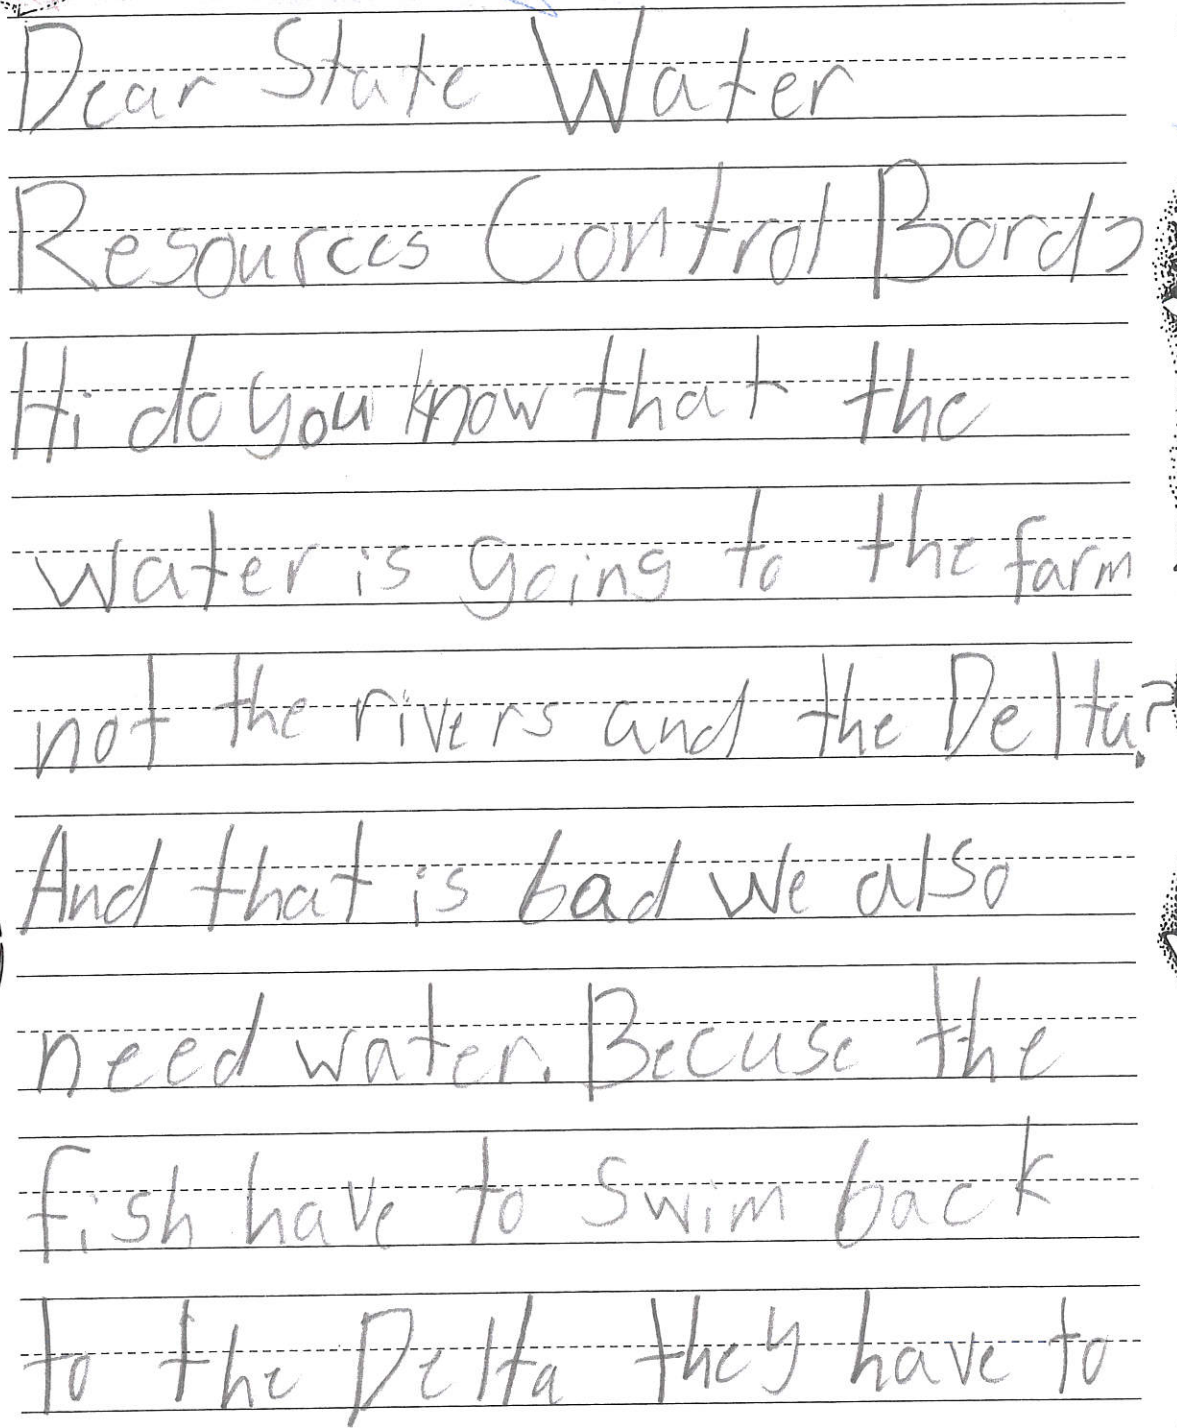 Dear State Water
Resources Control Bord,
Hi do you know that the
water is going to the farm
not the rivers and the Delta?
And that is bad we also
need water. Becuse the
fish have to swim back
to the Delta they have to